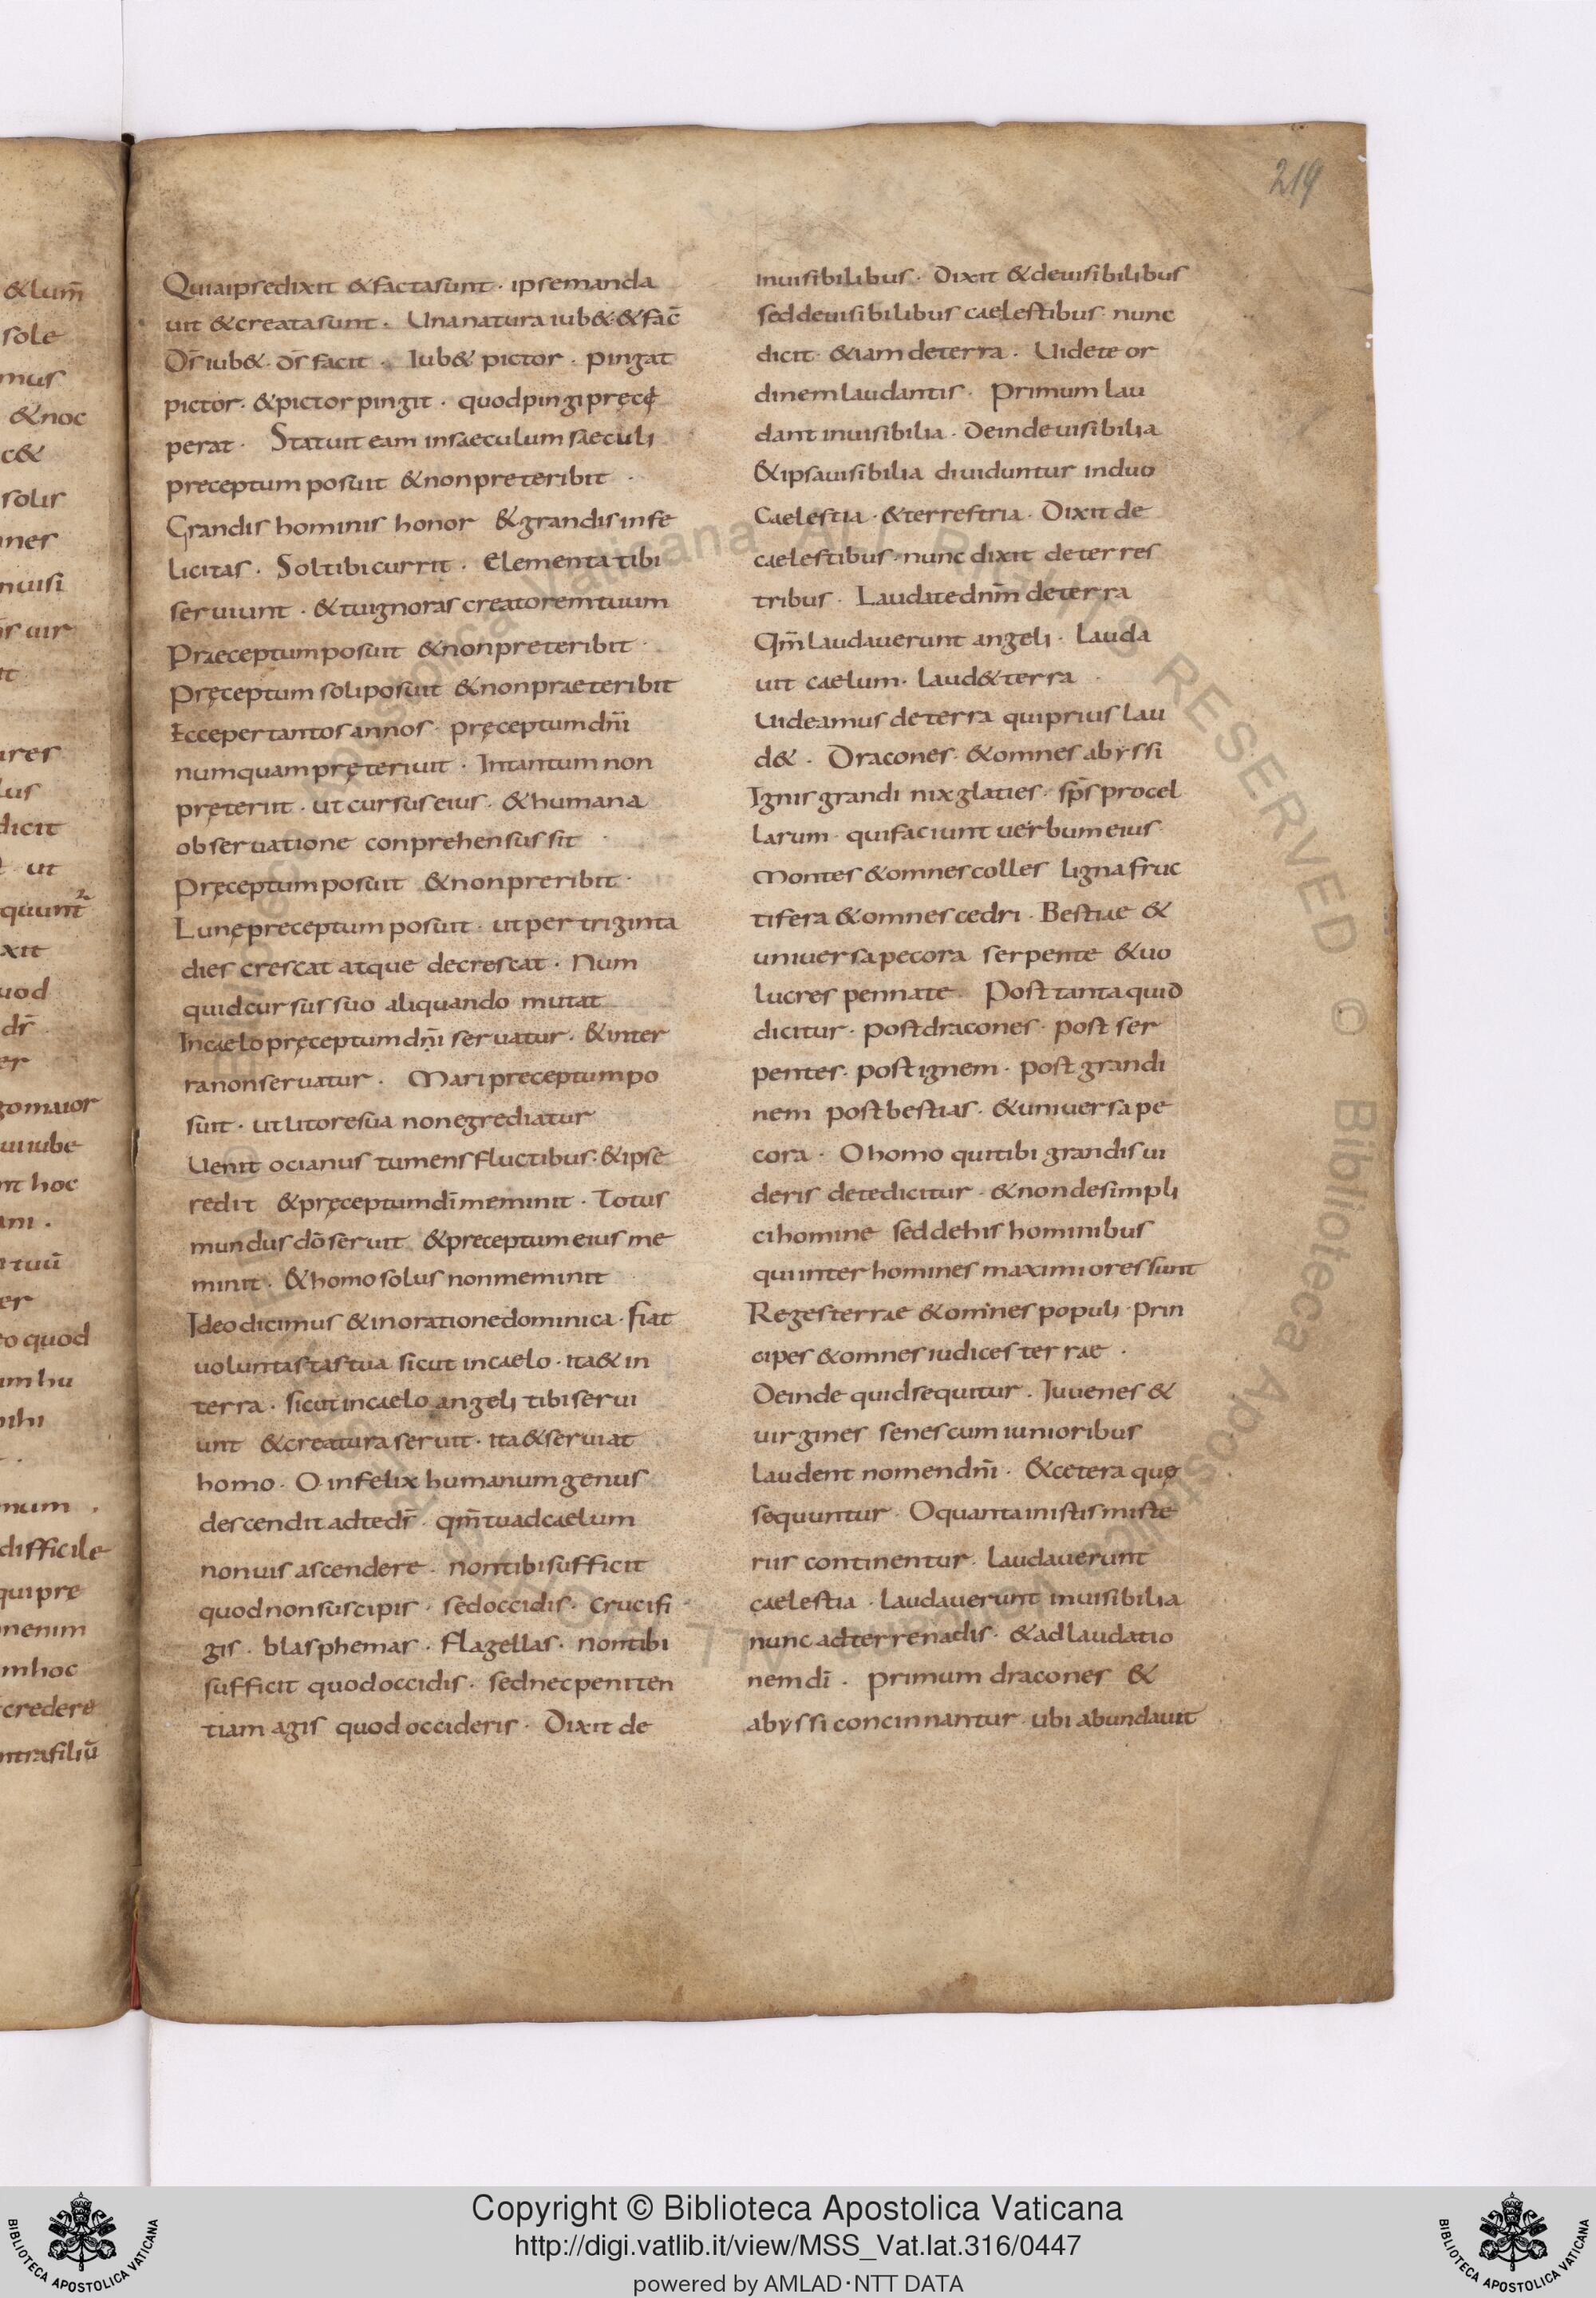 219
& lum̄
sole
mus
& noc
c&
solis
nuisi
ures
lus
dicit
ut
xit
uod
dr̄
er
go maior
ui iube
nt hoc
tuū
er
o quod
um hu
ihi
num .
difficile
qui prę
nenim
m hoc
credere
ntra filiū
Quia ipse dixit & facta sunt · ipse manda
uit & creata sunt · Una natura iub& · & fac̄
Ds̄ iub& · ds̄ facit · Iub& pictor · pingat
pictor · & pictor pingit · quod pingi pręcę
perat · Statuit eam in saeculum saeculi
preceptum posuit & non preteribit ·
Grandis hominis honor & grandis infe
licitas · Sol tibi currit · Elementa tibi
seruiunt · & tu ignoras creatorem tuum
Praeceptum posuit & non preteribit ·
Pręceptum soli posuit & non praeteribit
Ecce per tantos annos · pręceptum dn̄i
numquam pręteriuit · In tantum non
pręteriit · ut cursus eius · & humana
obseruatione conprehensus sit ·
Pręceptum posuit & non preribit ·
Lunę preceptum posuit · ut per triginta
dies crescat atque decrescat · Num
quid cursus suo aliquando mutat
In caelo pręceptum dn̄i seruatur · & in ter
ra non seruatur · Mari preceptum po
suit · ut litore sua non egrediatur
Uenit ocianus tumens fluctibus · & ipse
redit & pręceptum dī meminit · Totus
mundus dō seruit & preceptum eius me
minit · & homo solus non meminit
Ideo dicimus & in oratione dominica · fiat
uoluntas tas tua sicut in caelo · ita & in
terra · sicut in caelo angeli tibi serui
unt & creatura seruit · ita & seruiat
homo · O infelix humanum genus
descendit ad te ds̄ · qm̄ tu ad caelum
non uis ascendere · non tibi sufficit
quod non suscipis · sed occidis · crucifi
gis · blasphemas · flagellas · non tibi
sufficit quod occidis · sed nec peniten
tiam agis quod occideris · Dixit de
inuisibilibus · Dixit & de uisibilibus
sed de uisibilibus caelestibus · nunc
dicit · & iam de terra · Uidete or
dinem laudantis · Primum lau
dant inuisibilia · Deinde uisibilia
& ipsa uisibilia diuiduntur in duo
Caelestia · & terrestria · Dixit de
caelestibus · nunc dixit de terres
tribus · Laudate dnm̄ de terra
Qm̄ laudauerunt angeli · lauda
uit caelum · laud& terra ·
Uideamus de terra qui prius lau
d& · Dracones · & omnes abyssi
Ignis grandi nix glaties · sps̄ procel
larum · qui faciunt uerbum eius
Montes & omnes colles ligna fruc
tifera & omnes cedri · Bestiae &
uniuersa pecora serpente & uo
lucres pennate · Post tanta quid
dicitur · post dracones · post ser
pentes · post ignem · post grandi
nem post bestias · & uniuersa pe
cora · O homo qui tibi grandis ui
deris de te dicitur · & non de simpli
ci homine sed de his hominibus
qui inter homines maximiores sunt
Reges terrae & omnes populi · prin
cipes & omnes iudices terrae ·
Deinde quid sequitur · Iuuenes &
uirgines senes cum iunioribus
laudent nomen dn̄i · & cetera quę
sequuntur · O quanta in istis miste
riis continentur · laudauerunt
caelestia · laudauerunt inuisibilia
nunc ad terrena dis · & ad laudatio
nem dī · Primum dracones &
abyssi concinnantur · ubi abundauit
Copyright © Biblioteca Apostolica Vaticana
http://digi.vatlib.it/view/MSS_Vat.lat.316/0447
powered by AMLAD·NTT DATA
BIBLIOTECA APOSTOLICA VATICANA
BIBLIOTECA APOSTOLICA VATICANA